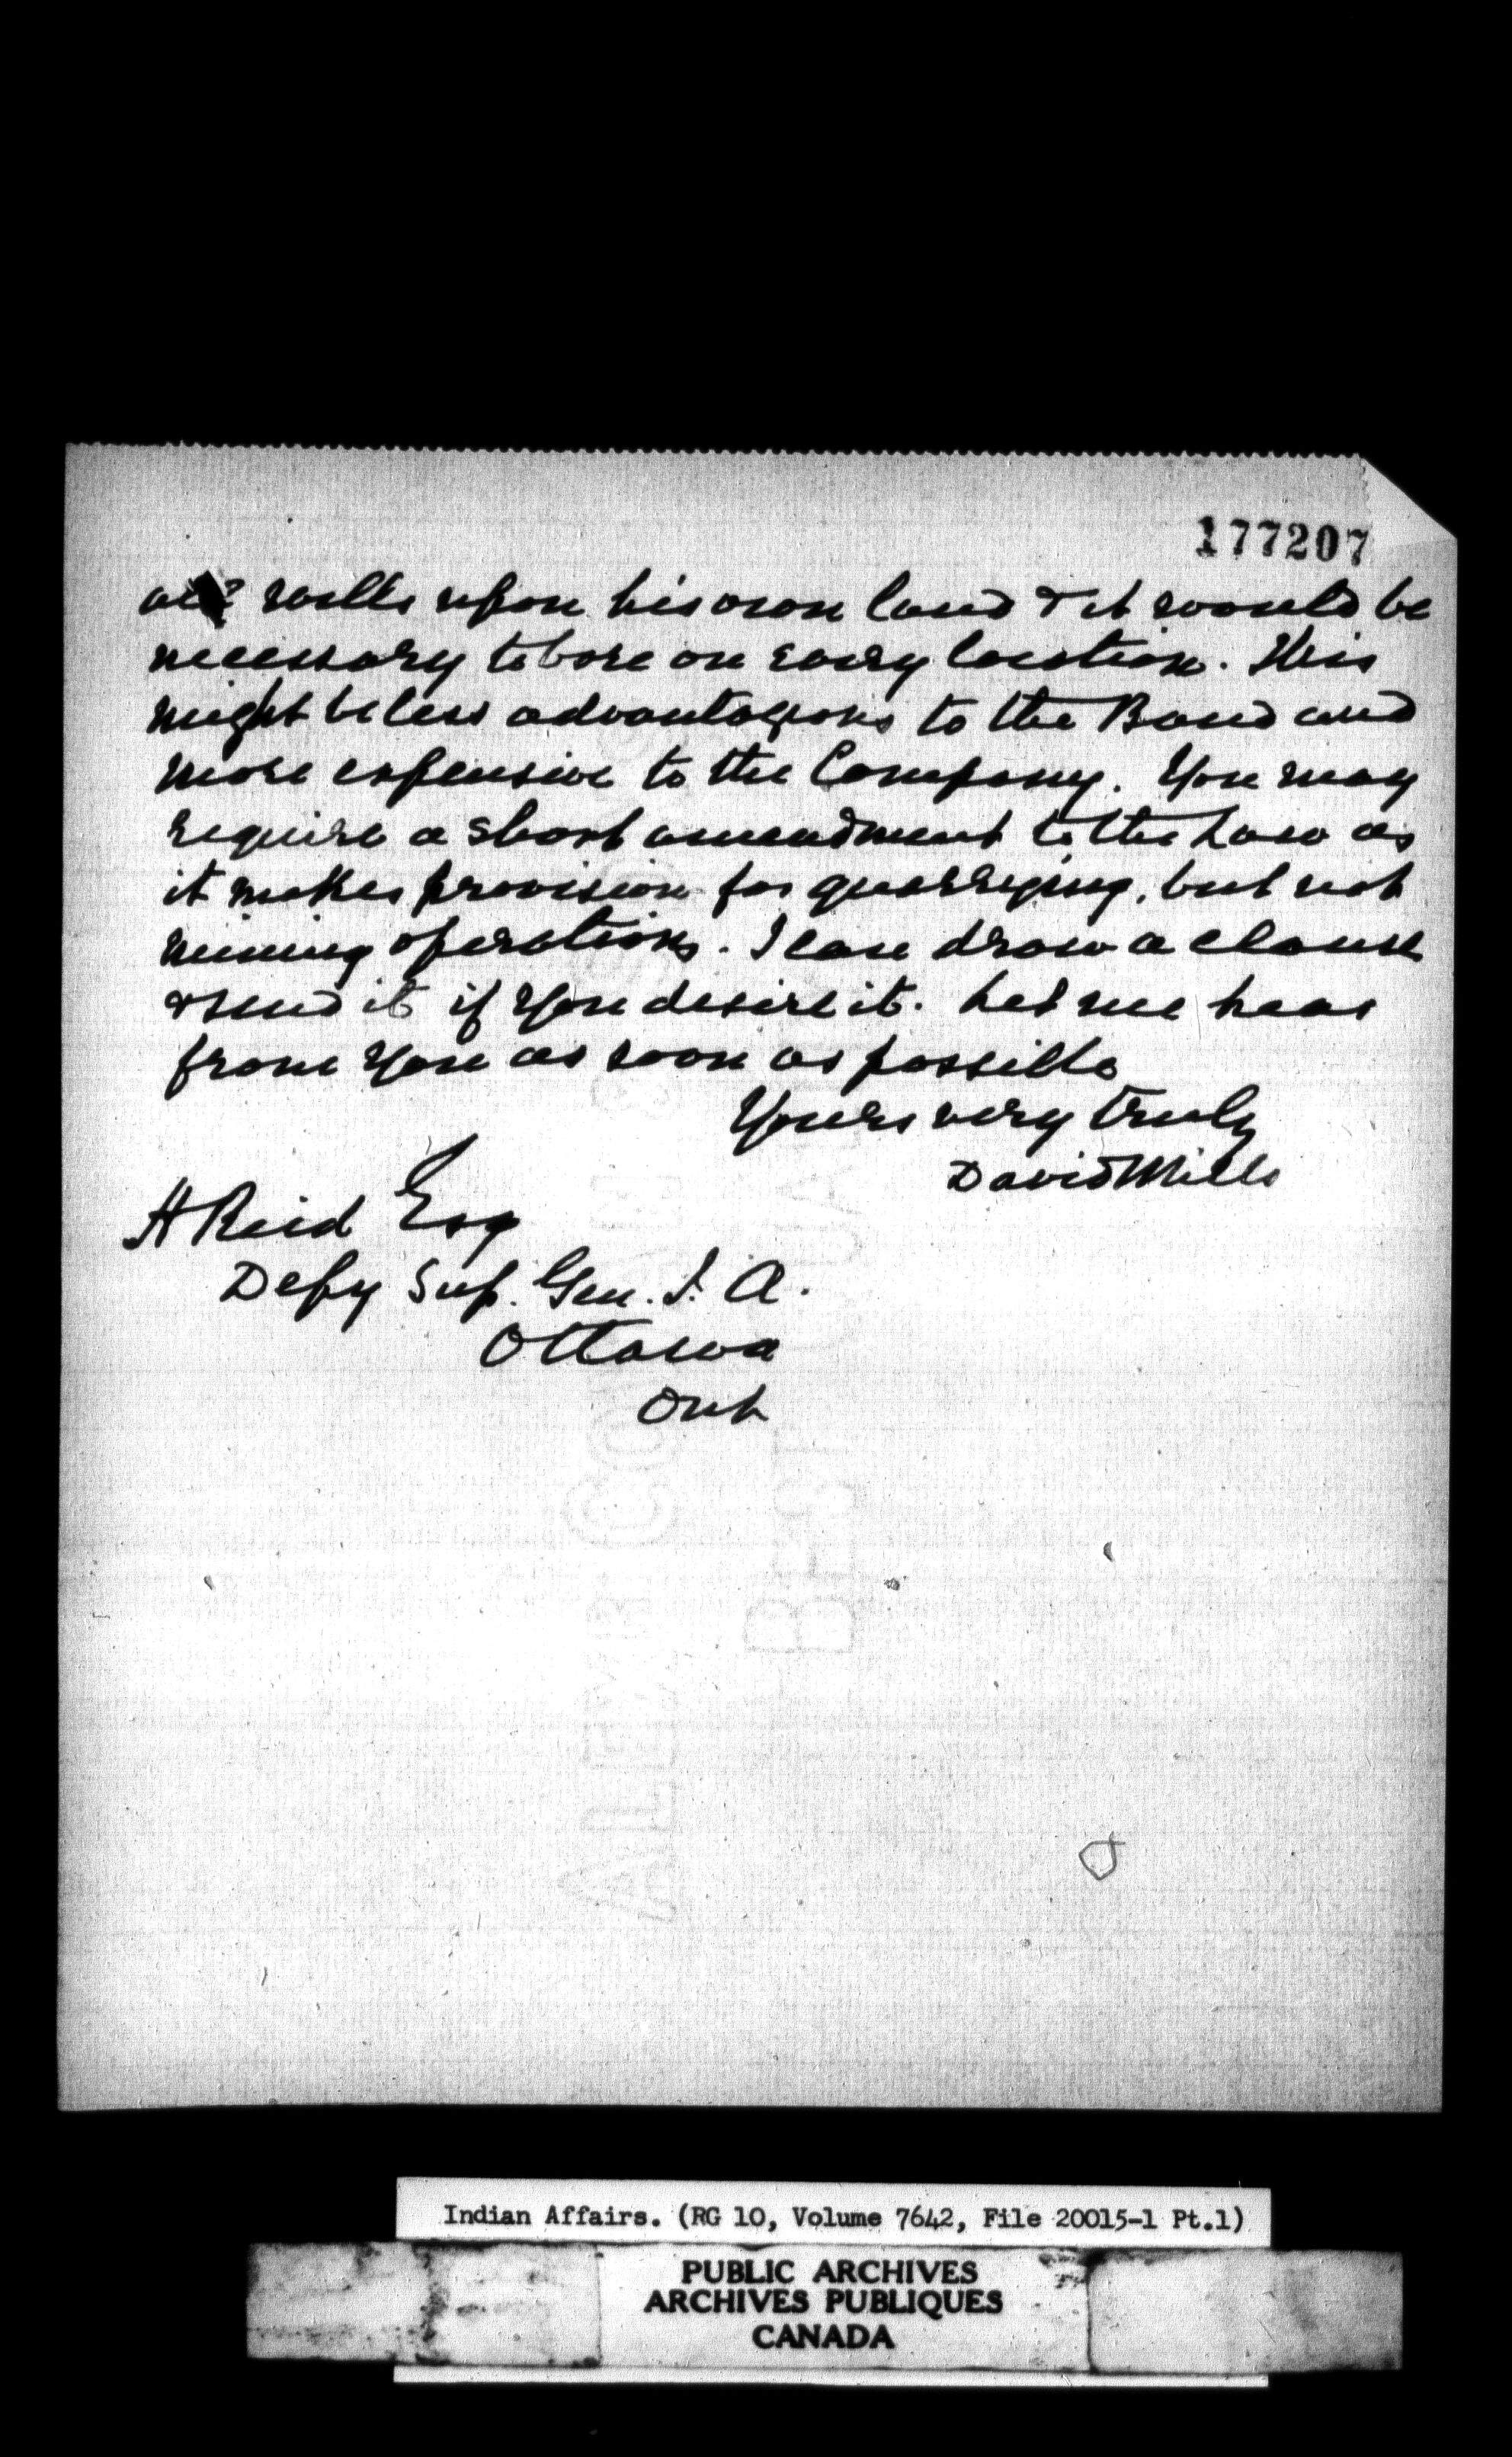 177207
wells upon his own land & it would be
necessary to bore on every location. This
might be less advantageous to the Band and
more expensive to the Company. You may
require a short amendment to the Law as
it makes provision for quarrying, but not
mining operations. I can draw a clause
& send it if you desire it. Let me hear
from you as soon as possible
Yours very truly
David Mills
H Reid Esq
Depy Sup. Gen. I. A.
Ottawa
Ont
Indian Affairs. (RG 10, Volume 7642, File 20015-1 Pt.1)
PUBLIC ARCHIVES
ARCHIVES PUBLIQUES
CANADA